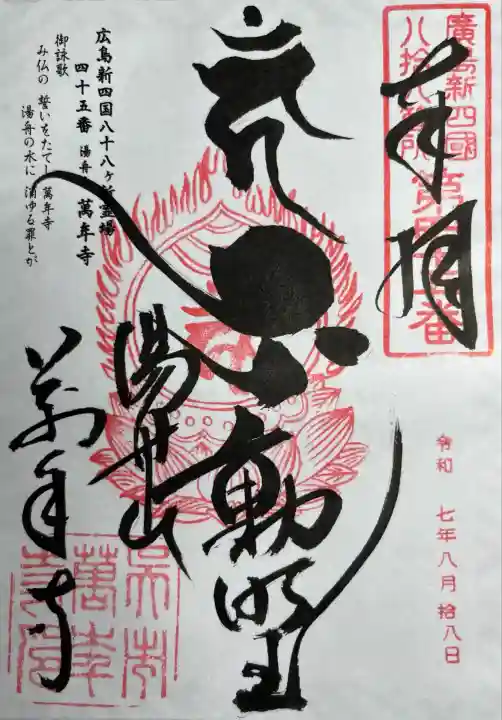 廣島新四國
八拾八ヶ所第四十五番
奉拝
令和 七年八月拾八日
不動明王
湯舟山
萬年寺
広島新四国八十八ヶ所霊場
四十五番 湯舟 萬年寺
御詠歌
み仏の 誓いをたてし 萬年寺
湯舟の水に 消ゆる罪とが